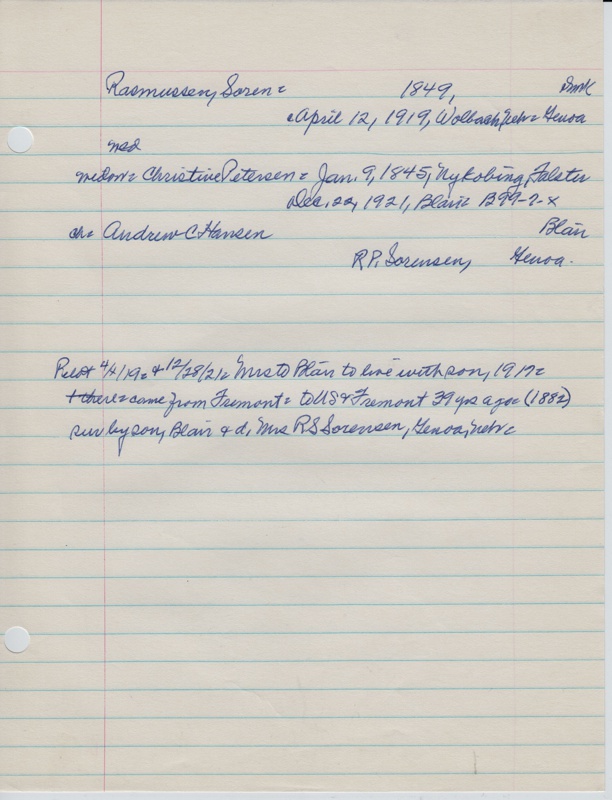 Rasmussen, Soren = 1849, Dmk
April 12, 1919, Wolbach, Nebr = Genoa
md
widow = Christine Petersen = Jan. 9, 1845, Nykobing, Falster
Dec. 22, 1921, Blair = B99-2-x
ch = Andrew C Hansen Blair
R P. Sorensen, Genoa.
Pilot 4/4/19 = + 12/28/21 = Mrs to Blair to live with son, 1917 =
+ there = came from Fremont = to US & Fremont 39 yrs ago = (1882)
sur by son, Blair & d, Mrs R S Sorensen, Genoa, Nebr =